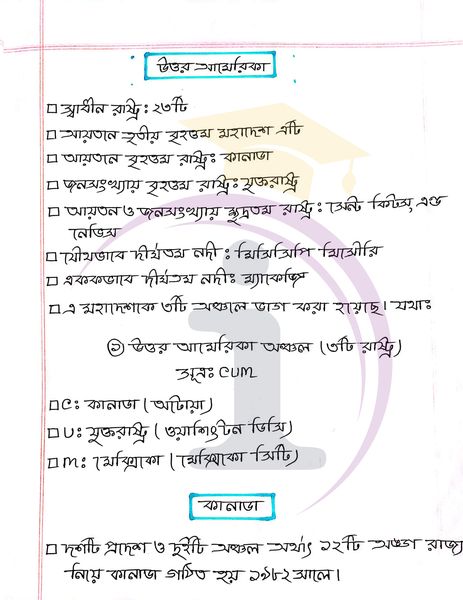 উত্তর আমেরিকা
□ স্বাধীন রাষ্ট্র: ২৩টি
□ আয়তনে তৃতীয় বৃহত্তম মহাদেশ এটি
□ আয়তনে বৃহত্তম রাষ্ট্র: কানাডা
□ জনসংখ্যায় বৃহত্তম রাষ্ট্র: যুক্তরাষ্ট্র
□ আয়তন ও জনসংখ্যায় ক্ষুদ্রতম রাষ্ট্র: সেন্ট কিটস, এন্ড
নেভিস
□ যৌথভাবে দীর্ঘতম নদী: মিসিসিপি মিসৌরি
□ এককভাবে দীর্ঘতম নদী: ম্যাকেঞ্জি
□ এ মহাদেশকে ৩টি অঞ্চলে ভাগ করা হয়েছে। যথা:
① উত্তর আমেরিকা অঞ্চল (৩টি রাষ্ট্র)
সূত্র: CUM
□ C: কানাডা (অটোয়া)
□ U: যুক্তরাষ্ট্র (ওয়াশিংটন ডিসি)
□ M: মেক্সিকো (মেক্সিকো সিটি)
কানাডা
□ দশটি প্রদেশ ও দুইটি অঞ্চল অর্থাৎ ১২টি অঙ্গ রাজ্য
নিয়ে কানাডা গঠিত হয় ১৯৮২ সালে।